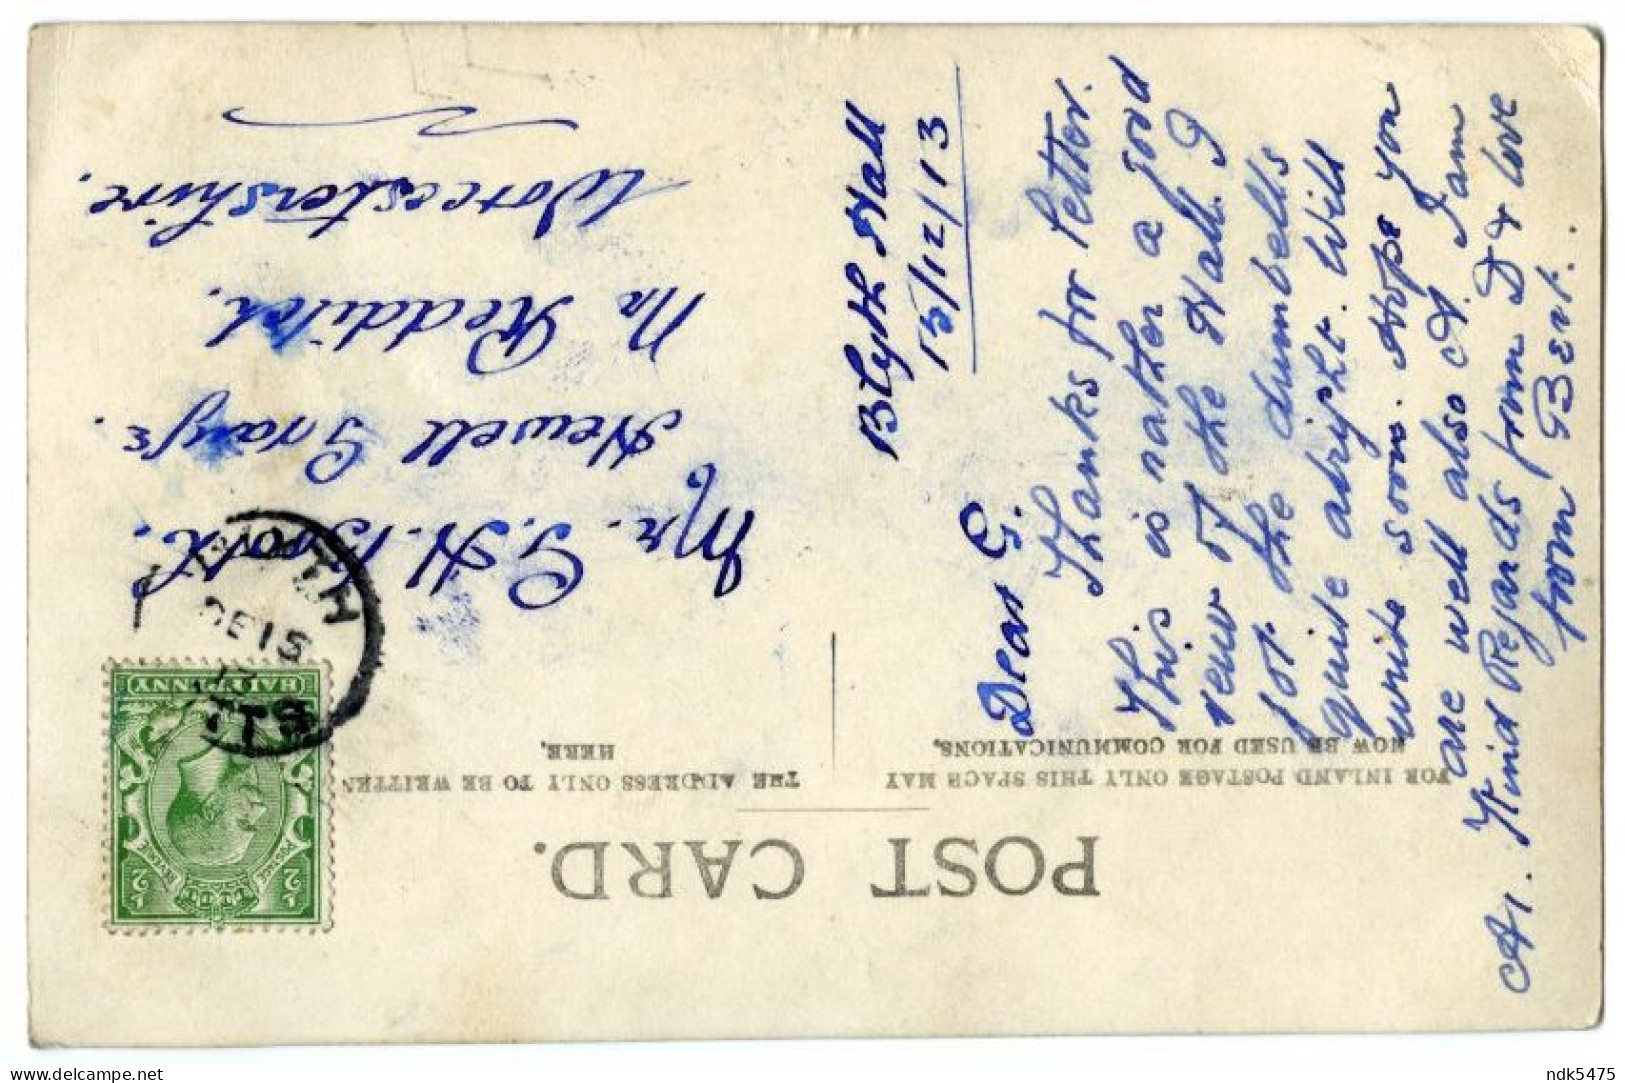 POST CARD.
FOR INLAND POSTAGE ONLY THIS SPACE MAY
NOW BE USED FOR COMMUNICATIONS,
THE ADDRESS ONLY TO BE WRITTEN
HERE,
Blyth Hall
15/12/13
Dear G.
Thanks for letter.
This is rather a good
veiw of the Hall. I
got the dumbells
quite alright. Will
write soon. Hope you
are well also A. I am
A1. Kind Regards from D & love
from Bert.
Mr. G. H. Brott.
Hewell Grange.
Nr Redditch.
Worcestershire.
DE 15
13
HALFPENNY
POSTAGE
REVENUE
1/2
1/2
ndk5475